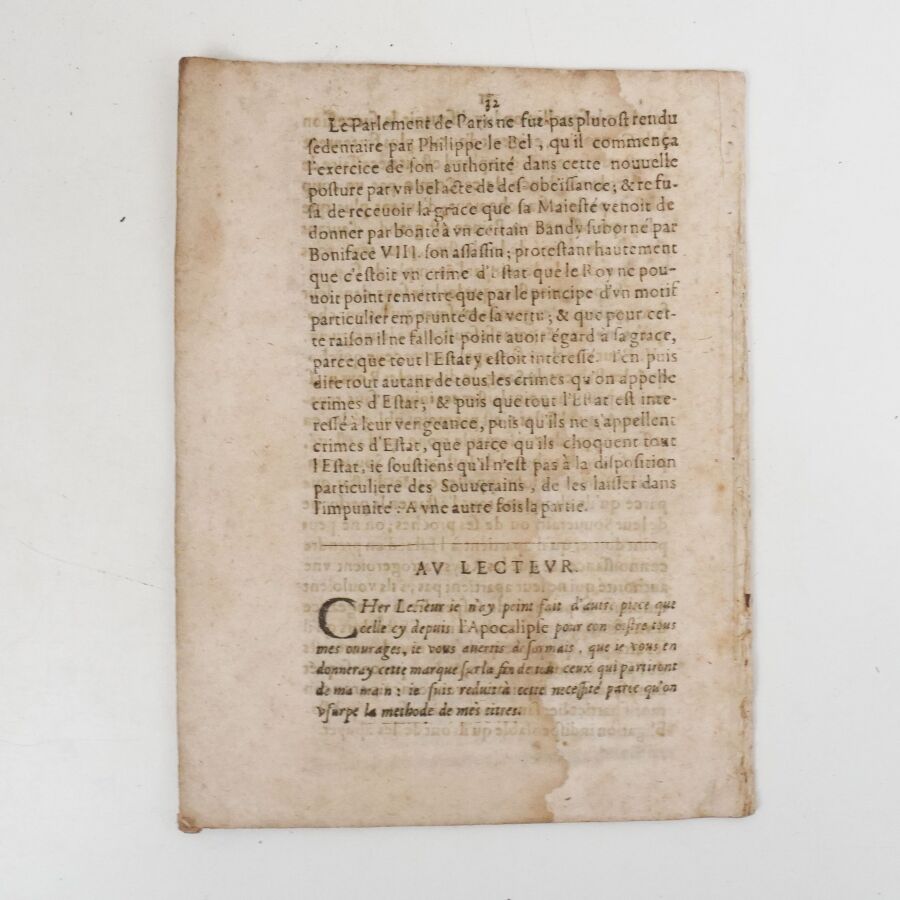 32
Le Parlement de Paris ne fut pas plutost rendu
ſedentaire par Philippe le Bel, qu'il commença
l'exercice de ſon authorité dans cette nouuelle
poſture par vn bel acte de deſ-obeïſſance; & refu-
ſa de receuoir la grace que ſa Maieſté venoit de
donner par bonté à vn certain Bandy ſuborné par
Boniface VIII. ſon aſſaſſin; proteſtant hautement
que c'eſtoit vn crime d'Eſtat que le Roy ne pou-
uoit point remettre que par le principe d'vn motif
particulier emprunté de ſa vertu; & que pour cet-
te raiſon il ne falloit point auoir égard à ſa grace,
parce que tout l'Eſtat y eſtoit intereſſé. I'en puis
dire tout autant de tous les crimes qu'on appelle
crimes d'Eſtat; & puis que tout l'Eſtat eſt inte-
reſſé à leur vengeance, puis qu'ils ne s'appellent
crimes d'Eſtat, que parce qu'ils choquent tout
l'Eſtat, ie ſouſtiens qu'il n'eſt pas à la diſpoſition
particuliere des Souuerains, de les laiſſer dans
l'impunité. A vne autre fois la partie.
AV LECTEVR.
CHer Lecteur ie n'ay point fait d'autre piece que
celle cy depuis l'Apocalipſe pour connoiſtre tous
mes ouurages, ie vous auertis deſormais, que ie vous en
donneray cette marque ſur la fin de tous ceux qui partiront
de ma main: ie ſuis reduit à cette neceſſité parce qu'on
vſurpe la methode de mes titres.